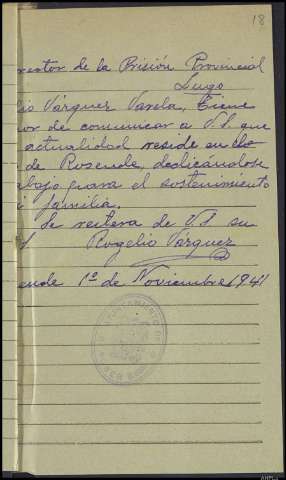 18
rector de la Prisión Provincial
Lugo
lio Vázquez Varela, tiene
nor de comunicar a V.S. que
actualidad reside en
de Rosende, dedicándose
abajo para el sostenimiento
familia.
Se reitera de V.S su
Rogelio Vázquez
sende 1º de Noviembre 1941
AYUNTAMIENTO DE